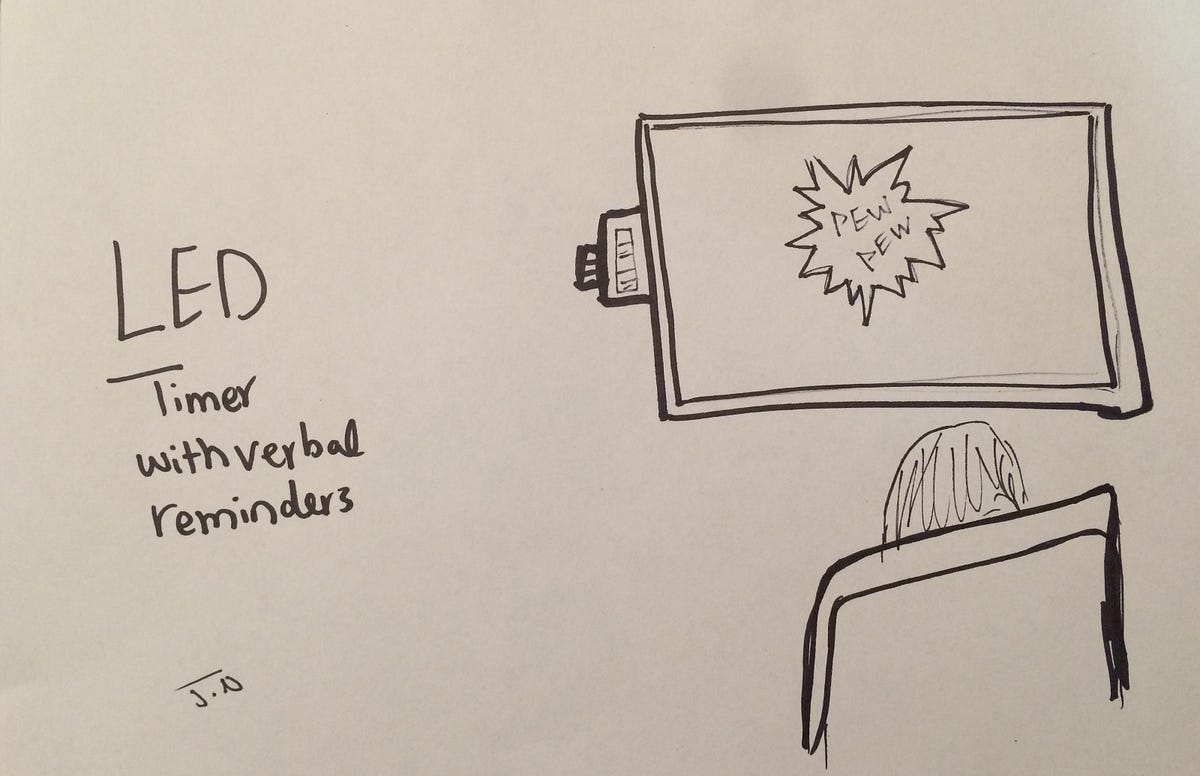 LED
Timer
with verbal
reminders
J.N
PEW
PEW